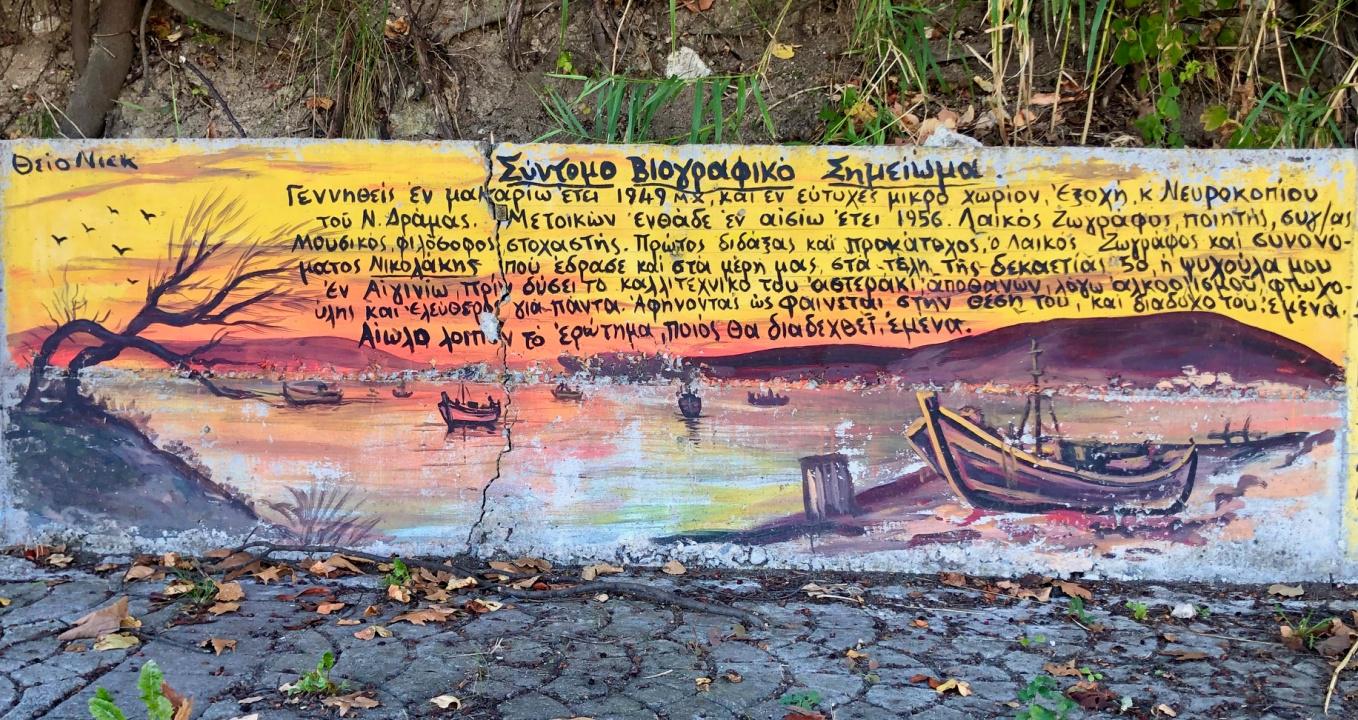 Θείο Νίεκ
Σύντομο Βιογραφικό Σημείωμα.
Γεννηθείς ἐν μακαρίω ἔτει 1949 μΧ, καί ἐν εὐτυχές μικρό χωρίον, Ἐξοχή, κ. Νευροκοπίου
τοῦ Ν. Δράμας. Μετοικῶν ἐνθάδε ἐν αἰσίω ἔτει 1956. Λαϊκός Ζωγράφος, ποιητής, συχ/ας
Μουσικός, φιλόσοφος στοχαστής. Πρῶτος διδάξας καί προκάτοχος, ὁ Λαϊκός Ζωγράφος καί συνονό-
ματος Νικολάκης πού ἔδρασε καί στά μέρη μας, στά τέλη τῆς δεκαετίας 50, ἡ ψυχούλα μου
ἐν Αἰγινίω πρίν δύσει τό καλλιτεχνικό του ἀστεράκι ἀποθανών λόγω ἀλκοολισμοῦ, φτωχο-
ύλης καί ἐλεύθερος γιά πάντα. Ἀφήνοντας ὡς φαίνεται στήν θέση του, καί διάδοχο του, ἐμένα.
Αἰωλο λοιπόν τό ἐρώτημα, ποιός θά διαδεχθεῖ, ἐμένα.